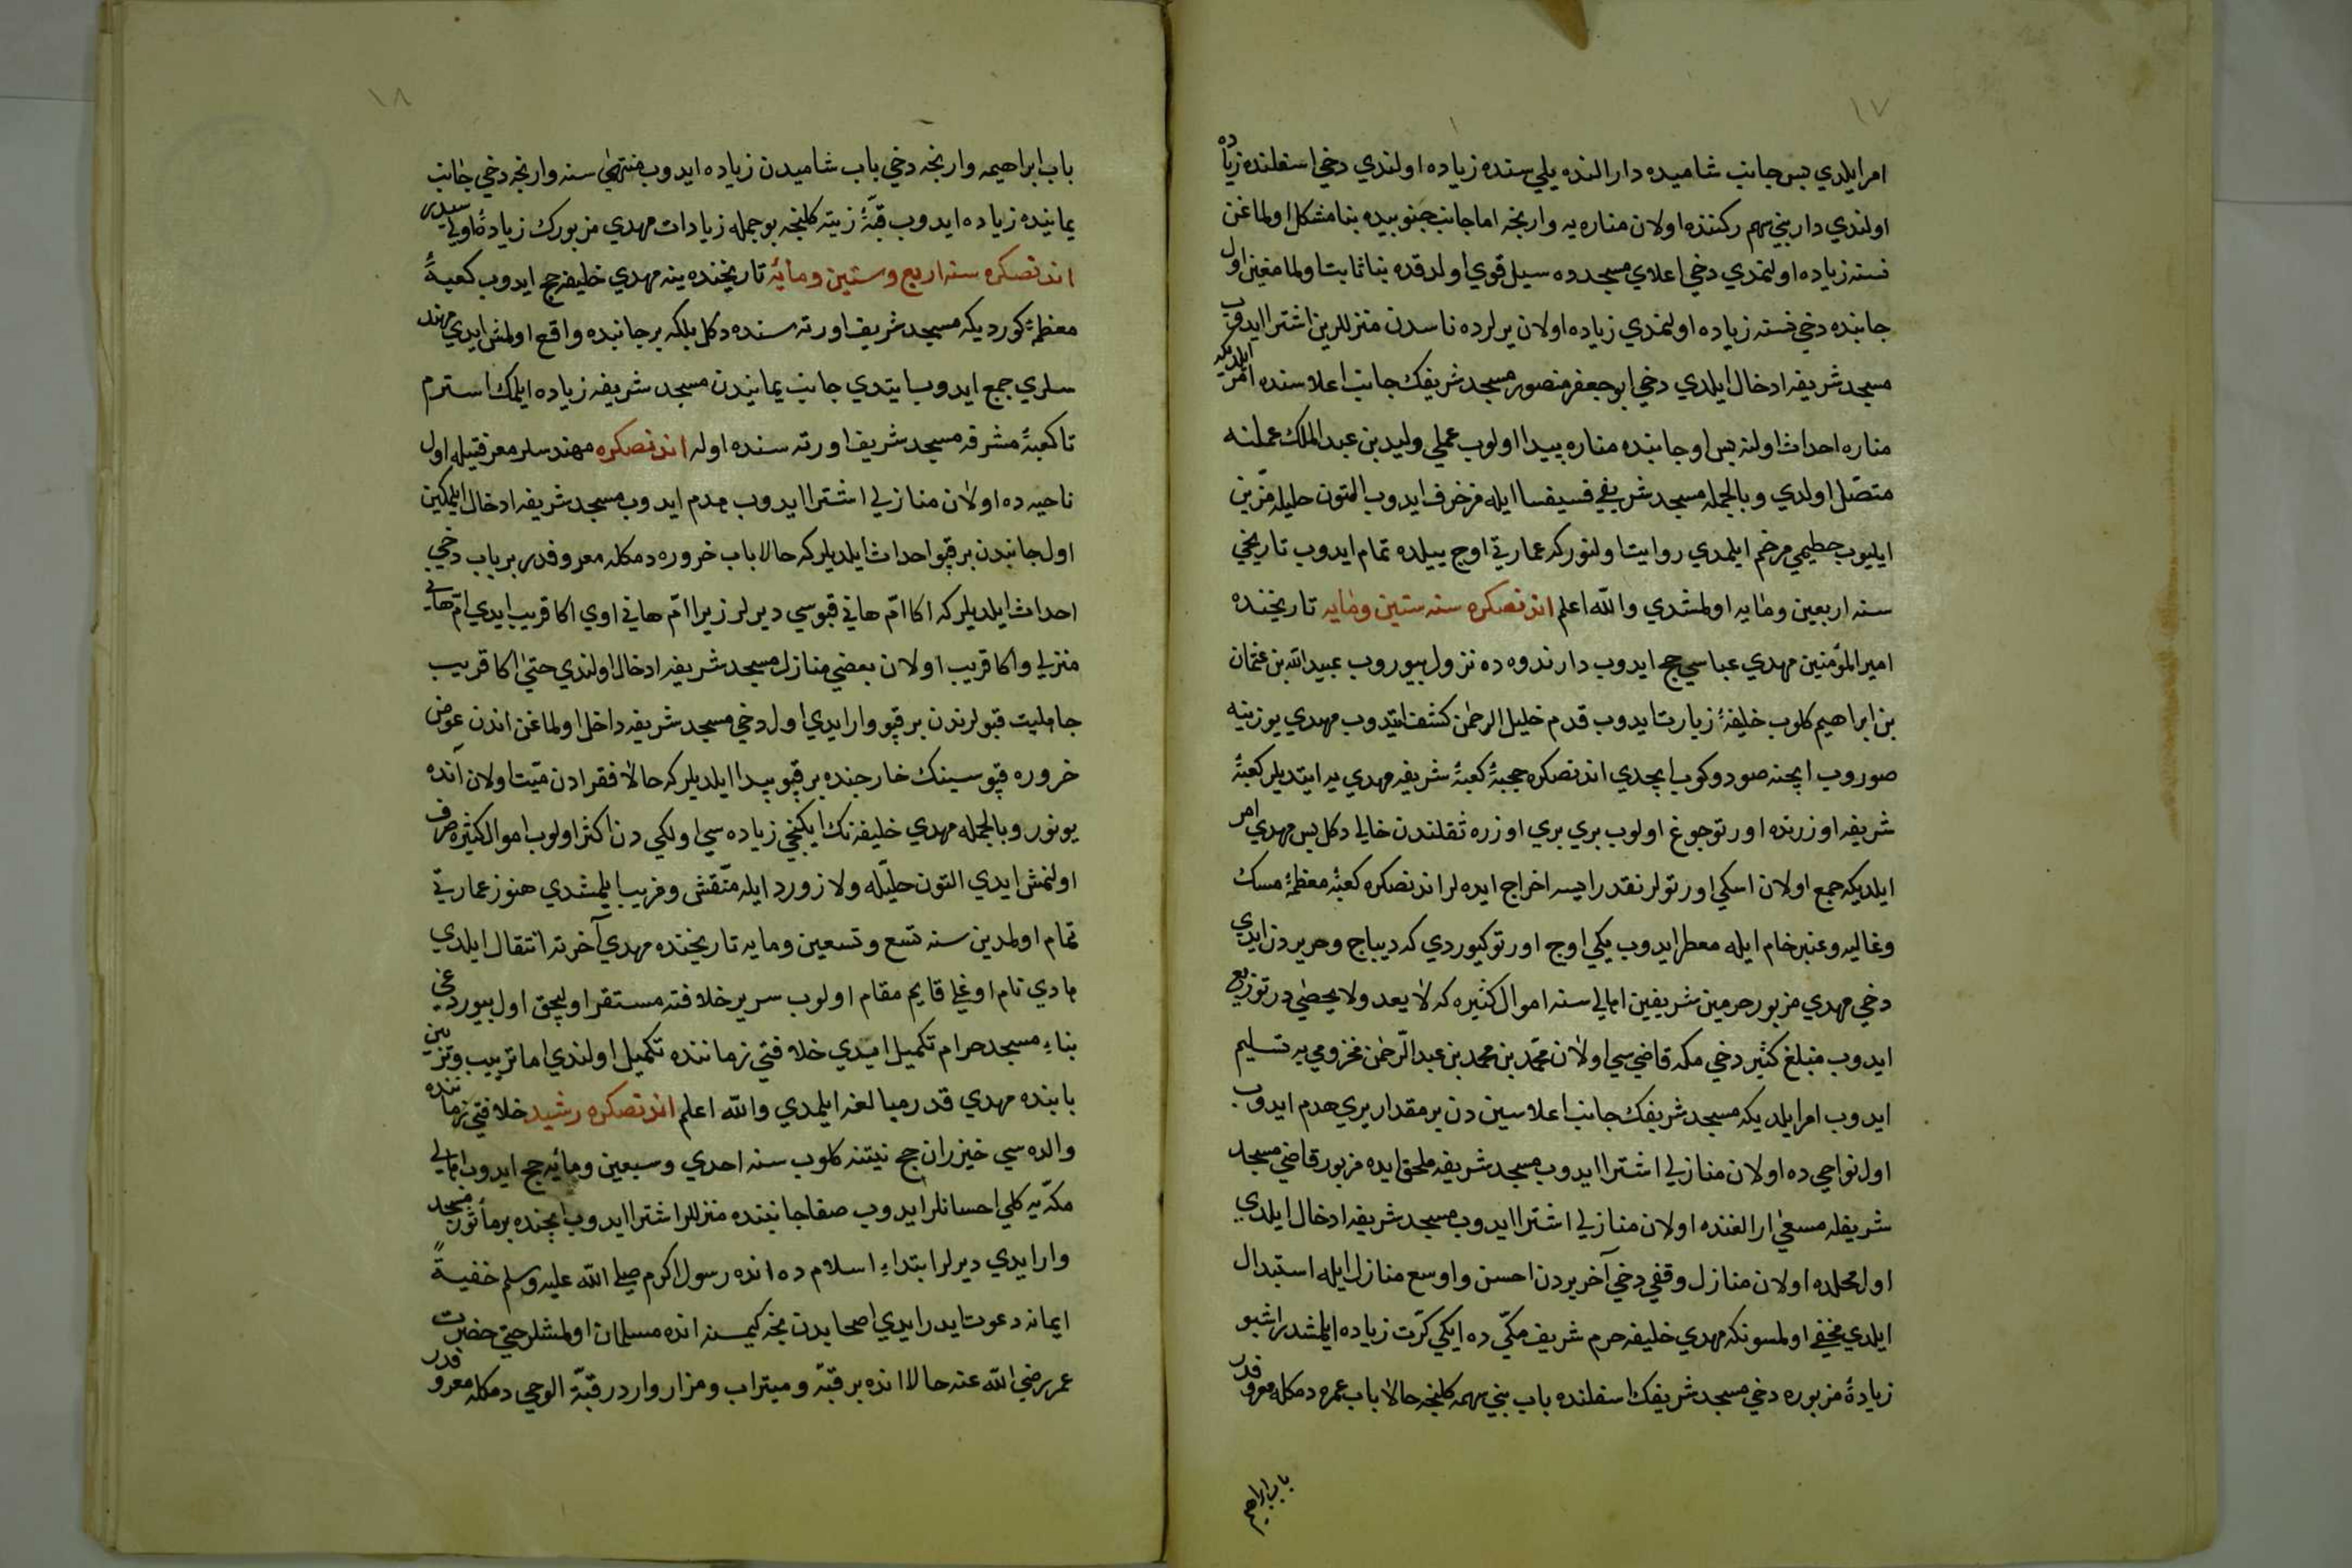 ١٧
امر ايلدي بس جانب شاميده دار الندوه يلي سنده زياده اولندي دخي اسفلنده زياده
اولندي دار بني سهم ركننده اولان مناره يه وارنجه اما جانب جنوبيده بنا مشكل اولماغن
نسنه زياده اولنمدي دخي اعلاي مسجده سيل قوي اولدقده بنا ثابت اولمامغين اول
جانبده دخي نسنه زياده اولنمدي زياده اولان يرلرده ناسدن منزللرين اشترا ايدوب
مسجد شريفه ادخال ايلدي دخي ابو جعفر منصور مسجد شريفك جانب اعلاسنده امر ايلديكه
مناره احداث اولنه بس او جانبده مناره پيدا اولوب عملي وليد بن عبد الملك عملنه
متصل اولدي وبالجمله مسجد شريفي فسيفسا ايله مزخرف ايدوب التون حليله مزين
ايليوب حطيمي مرخم ايلمدي روايت اولنور كه عمارتي اوج ييلده تمام ايدوب تاريخي
سنه اربعين ومايه اولمشدي والله اعلم اندنصكره سنه ستين ومايه تاريخنده
امير المؤمنين مهدي عباسي حج ايدوب دار ندوه ده نزول بيوروب عبيد الله بن عثمان
بن ابراهيم كلوب خليفۀ زيارت ايدوب قدم خليل الرحمن كشف ايتدوب مهدي يوزينه
صوروب ايچنه صو دوكوب ايچدي اندنصكره حجبۀ كعبۀ شريفه مهدي يه ايتديلر كعبۀ
شريفه اوزرنده اورتو چوغ اولوب بري بري اوزره ثقلندن خالي دكل بس مهدي امر
ايلديكه جمع اولان اسكي اورتولر نقدر ايسه اخراج ايده لر اندنصكره كعبۀ معظمۀ مسك
وغاليه وعنبر خام ايله معطر ايدوب يكي اوج اورتو كيوردي كه ديباج وحريردن ايدي
دخي مهدي مزبور حرمين شريفين اهالي سنه اموال كثيره كه لا يعد ولا يحصى در توزيع
ايدوب مبلغ كثير دخي مكه قاضي سي اولان محمد بن محمد بن عبد الرحمن مخزومي يه تسليم
ايدوب امر ايلديكه مسجد شريفك جانب اعلاسين دن بر مقدار يري هدم ايدوب
اول نواحي ده اولان منازلي اشترا ايدوب مسجد شريفه ملحق ايده مزبور قاضي مسجد
شريفله مسعى ارالغنده اولان منازلي اشترا ايدوب مسجد شريفه ادخال ايلدي
اول محلده اولان منازل وقفي دخي آخر يردن احسن واوسع منازل ايله استبدال
ايلدي مخفي اولمسونكه مهدي خليفه حرم شريف مكي ده ايكي كرت زياده ايلمشدر اشبو
زيادۀ مزبوره دخي مسجد شريفك اسفلنده باب بني سهمه كلنجه حالا باب عمره دمكله معروفدر
باب ابراهيم
١٨
باب ابراهيمه وارنجه دخي باب شاميدن زياده ايدوب منتهى سنه وارنجه دخي جانب
يمانيده زياده ايدوب قبۀ زيته كلنجه بو جمله زيادات مهدي مزبورك زيادۀ اولي سيدر
اندنصكره سنه اربع وستين ومائه تاريخنده ينه مهدي خليفه حج ايدوب كعبۀ
معظمۀ كورديكه مسجد شريف اورته سنده دكل بلكه بر جانبده واقع اولمش ايدي مهند
سلري جمع ايدوب ايتدي جانب يمانيدن مسجد شريفه زياده ايلمك استرم
تا كعبۀ مشرفه مسجد شريف اورته سنده اوله اندنصكره مهندسلر معرفتيله اول
ناحيه ده اولان منازلي اشترا ايدوب هدم ايدوب مسجد شريفه ادخال ايلمكين
اول جانبدن بر قپو احداث ايلديلر كه حالا باب خروره دمكله معروفدر بر باب دخي
احداث ايلديلر كه اكا ام هاني قپوسي ديرلر زيرا ام هاني اوي اكا قريب ايدي ام هاني
منزلي واكا قريب اولان بعضي منازل مسجد شريفه ادخال اولندي حتى اكا قريب
جاهليت قپولرندن بر قپو وار ايدي اول دخي مسجد شريفه داخل اولماغن اندن عوض
خروره قپوسينك خارجنده بر قپو پيدا ايلديلر كه حالا فقرادن ميت اولان آنده
يونور وبالجمله مهدي خليفه نك ايكنجي زياده سي اولكي دن اكثر اولوب اموال كثيره صرف
اولنمش ايدي التون حليله ولازورد ايله منقش ومزيب ايلمشدي هنوز عمارتي
تمام اولمدين سنه تسع وتسعين ومايه تاريخنده مهدي آخرته انتقال ايلدي
هادي نام اوغلي قايم مقام اولوب سرير خلافته مستقر اوليجق اول بيوردغي
بناء مسجد حرام تكميل ايدي خلافتي زماننده تكميل اولندي اما ترتيب وتزيين
بابنده مهدي قدر مبالغه ايلمدي والله اعلم اندنصكره رشيد خلافتي زماننده
والده سي خيزران حج نيتنه كلوب سنه احدي وسبعين ومائه حج ايدوب اهالي
مكه يه كلي احسانلر ايدوب صفا جانبنده منزللر اشترا ايدوب ايچنده بر مأثور مسجد
وار ايدي ديرلر ابتداء اسلام ده انده رسول اكرم صلى الله عليه وسلم خفيةً
ايمانه دعوت ايدر ايدي اصحابدن نجه كيمسنه انده مسلمان اولمشلر حتى حضرت
عمر رضي الله عنه حالا انده بر قبه وميتراب ومزار واردر قبۀ الوحي دمكله معروفدر